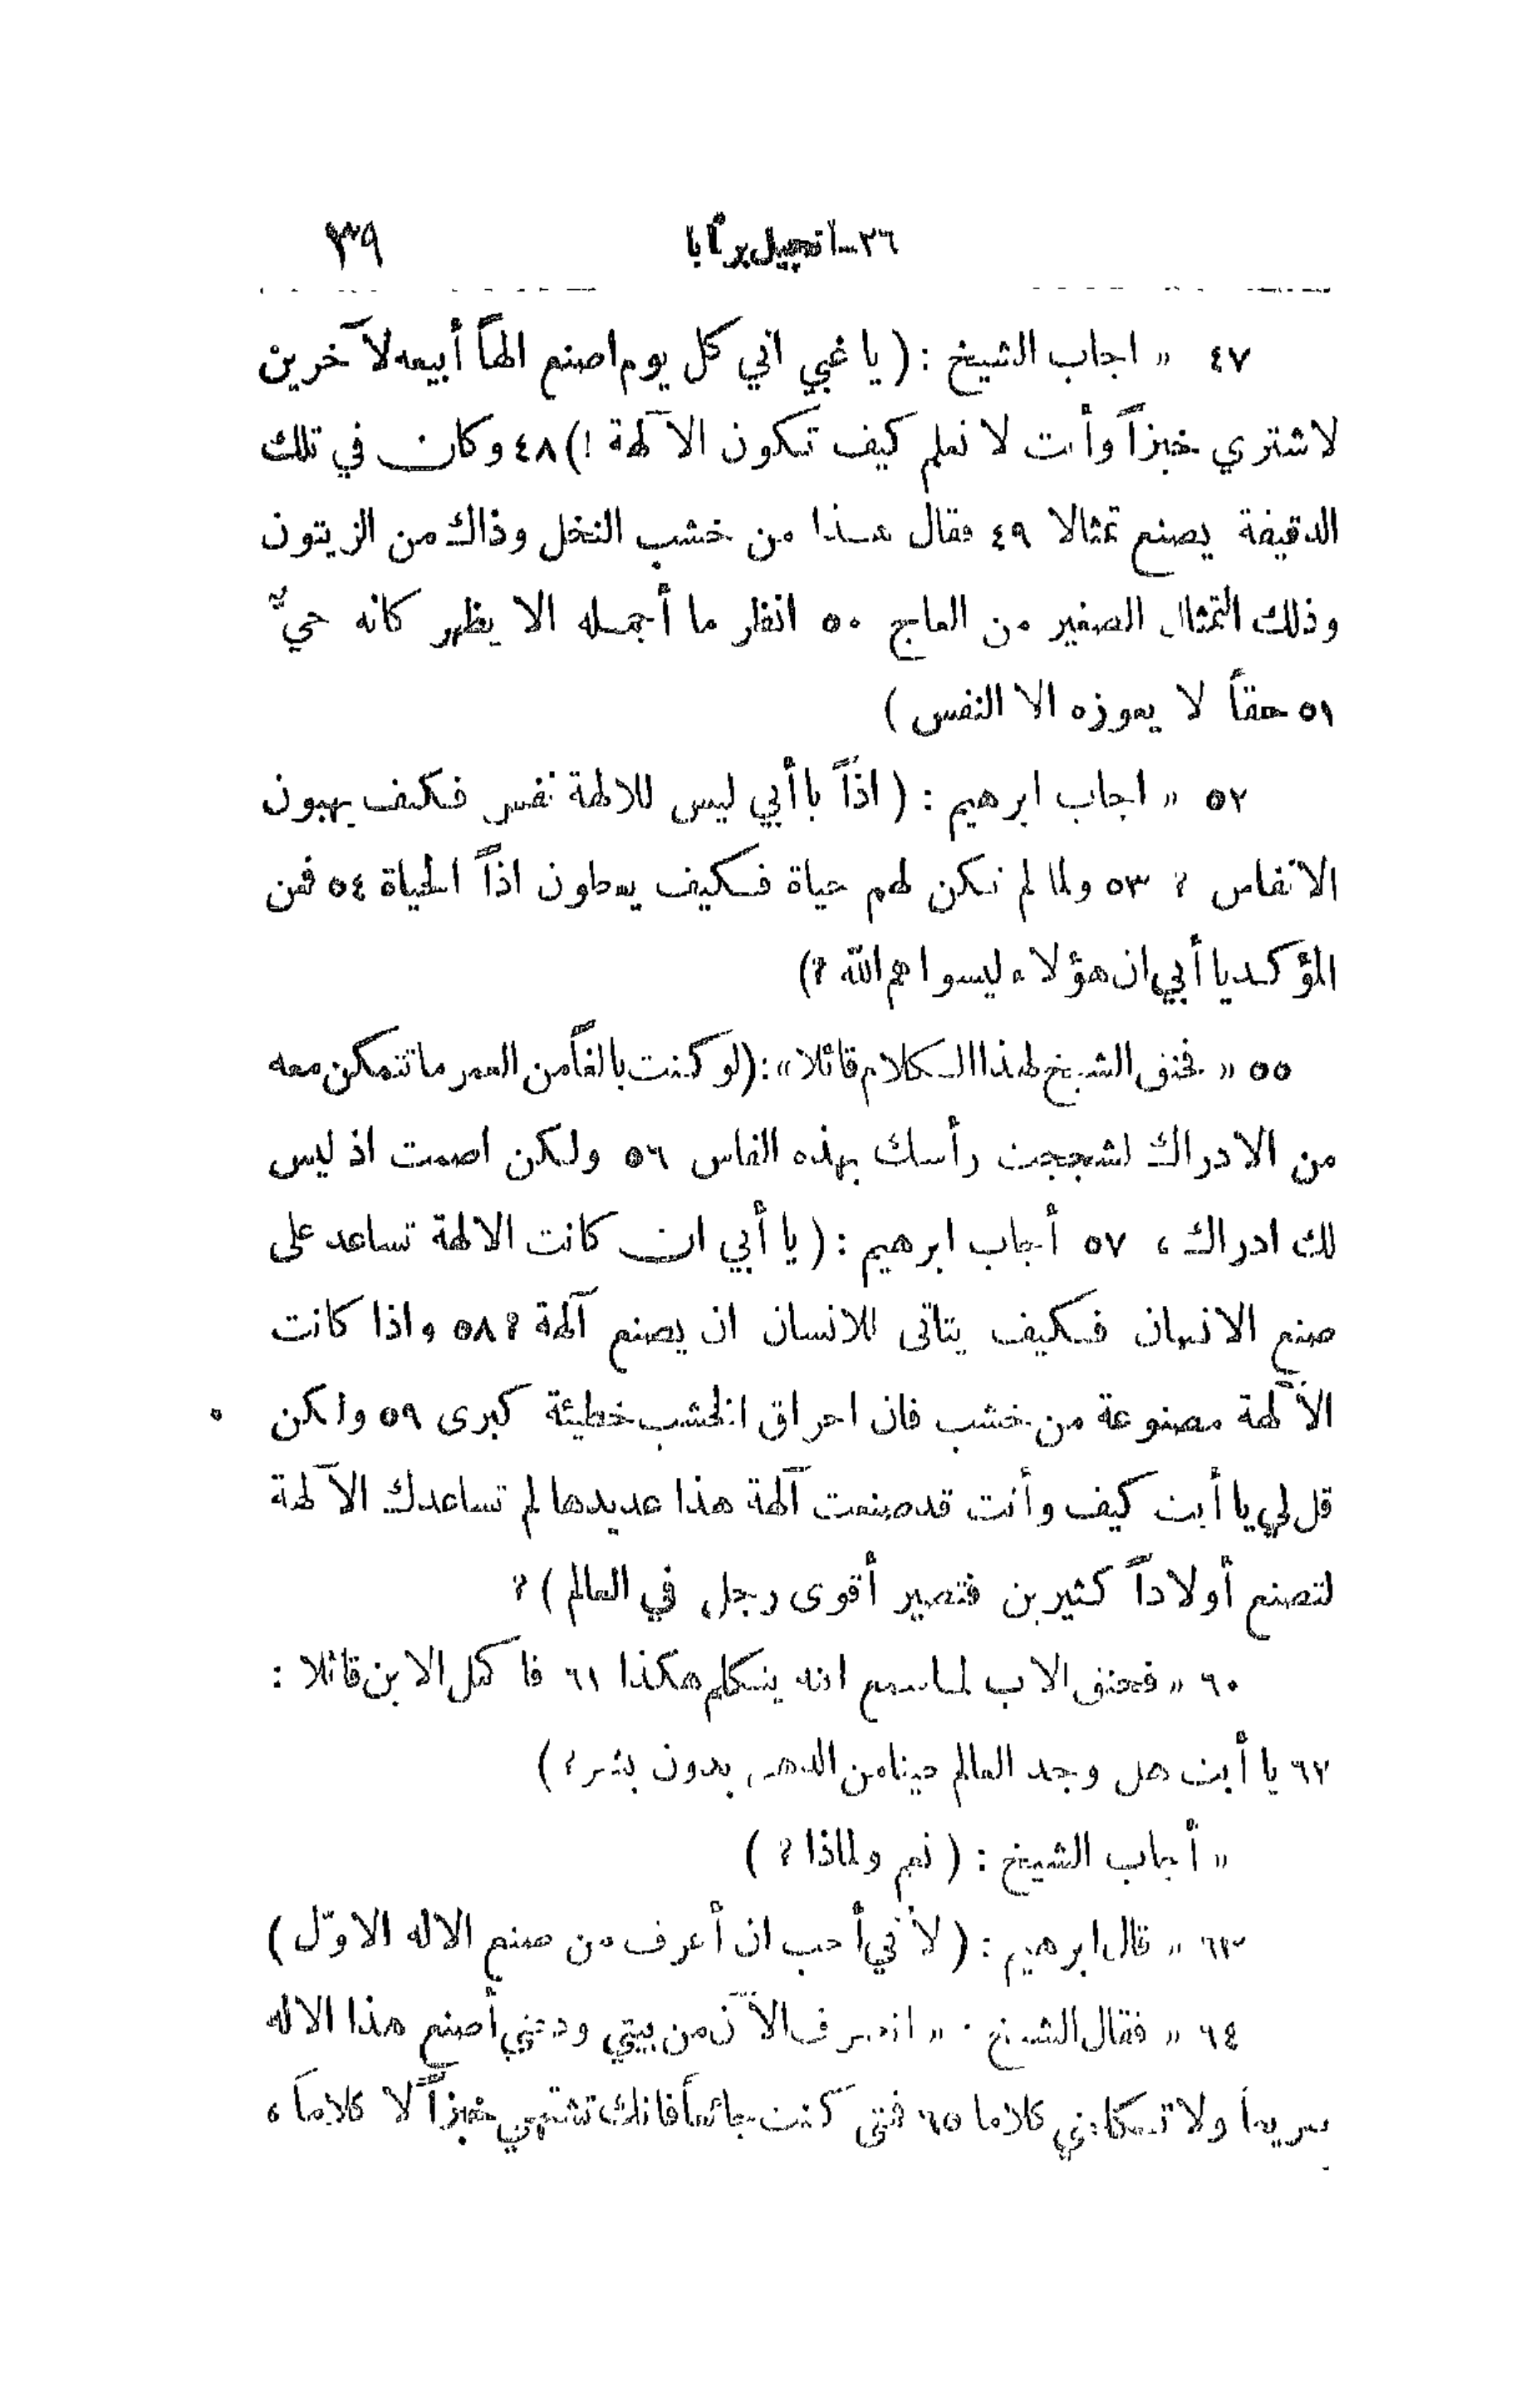 ٢٦-انجيل برنابا ٣٩
٤٧ « اجاب الشيخ : ( يا غبي اني كل يوم اصنع الهاً أبيعه لآخرين
لاشتري خبزاً وأنت لا تعلم كيف تكون الآلهة !) ٤٨ وكان في تلك
الدقيقة يصنع تمثالا ٤٩ فقال هذا من خشب النخل وذاك من الزيتون
وذلك التمثال الصغير من العاج ٥٠ انظر ما أجمله الا يظهر كانه حيٌّ
٥١ حقاً لا يعوزه الا النفس )
٥٢ « اجاب ابرهيم : ( اذاً يا أبي ليس للالهة نفس فكيف يهبون
الانفاس ؟ ٥٣ ولما لم تكن لهم حياة فكيف يعطون اذاً الحياة ٥٤ فمن
المؤكد يا أبي ان هؤلاء ليسوا هم الله ؟)
٥٥ « فحنق الشيخ لهذا الكلام قائلا » : ( لو كنت بالغاً من العمر ما تتمكن معه
من الادراك لشججت رأسك بهذه الفاس ٥٦ ولكن اصمت اذ ليس
لك ادراك ، ٥٧ أجاب ابرهيم : ( يا أبي ان كانت الالهة تساعد على
صنع الانسان فكيف يتاتى للانسان ان يصنع آلهة ؟ ٥٨ واذا كانت
الآلهة مصنوعة من خشب فان احراق الخشب خطيئة كبرى ٥٩ ولكن
قل لي يا أبت كيف وأنت قد صنعت آلهة هذا عديدها لم تساعدك الآلهة
لتصنع أولاداً كثيرين فتصير أقوى رجل في العالم ) ؟
٦٠ « فحنق الاب لما سمع ابنه يتكلم هكذا ٦١ فاكمل الابن قائلا :
٦٢ يا أبت هل وجد العالم حينا من الدهر بدون بشر ؟ )
« أجاب الشيخ : ( نعم ولماذا ؟ )
٦٣ « قال ابرهيم : ( لأني أحب ان أعرف من صنع الاله الاوّل )
٦٤ « فقال الشيخ : « انصرف الآن من بيتي ودعني أصنع هذا الاله
سريعاً ولا تكلمني كلاما ٦٥ فمتى كنت جائعاً فانك تشتهي خبزاً لا كلاماً ،